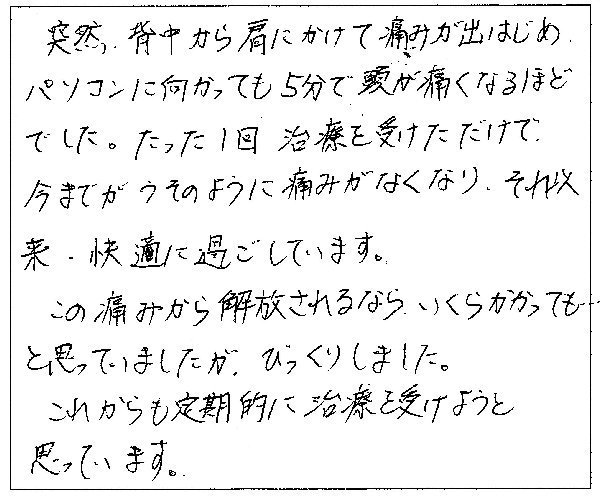 突然、背中から肩にかけて痛みが出はじめ
パソコンに向かっても5分で頭が痛くなるほど
でした。たった1回 治療を受けただけで、
今までがウソのように痛みがなくなり、それ以
来、快適に過ごしています。
この痛みから解放されるなら、いくらかかっても…
と思っていましたが、びっくりしました。
これからも定期的に治療を受けようと
思っています。